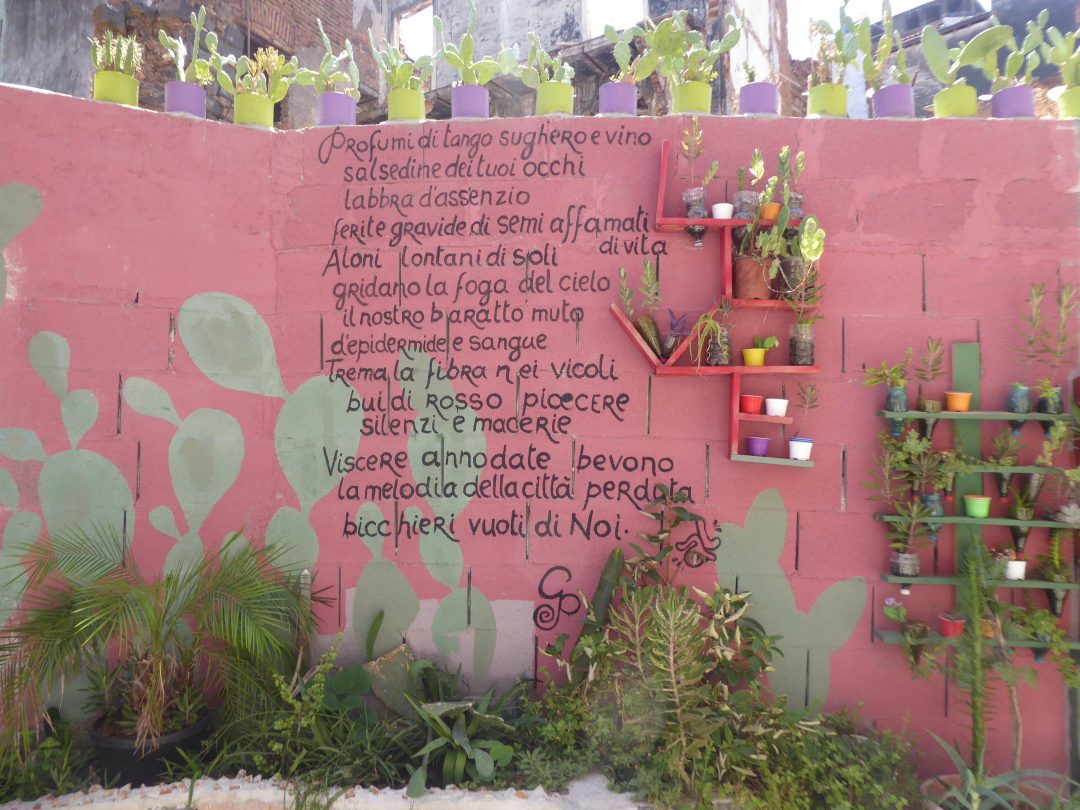 Profumi di tango sughero e vino
salsedine dei tuoi occhi
labbra d'assenzio
ferite gravide di semi affamati
di vita
Aloni lontani di soli
gridano la foga del cielo
il nostro baratto muto
d'epidermide e sangue
Trema la fibra nei vicoli
bui di rosso piacere
silenzi e macerie
Viscere annodate bevono
la melodia della città perduta
bicchieri vuoti di Noi.
GP